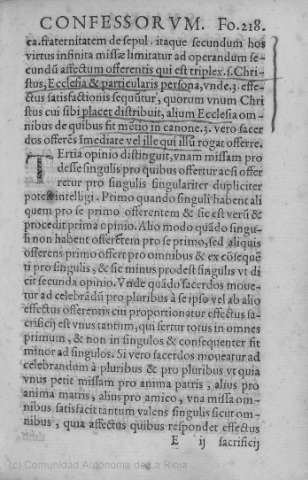 CONFESSORVM. Fo.218.
ca.fraternitatem de sepul. itaque secundum hos
virtus infinita missæ limitatur ad operandum se-
cundũ affectum offerentis qui est triplex.s.Chri-
stus, Ecclesia & particularis persona, vnde.3.effe-
ctus satisfactionis sequũtur, quorum vnum Chri
stus cui sibi placet distribuit, alium Ecclesia om-
nibus de quibus fit mẽtio in canone.3. vero sacer
dos offerẽs ĩmediate vel ille qui illũ rogat offerre.
TErtia opinio distinguit, vnam missam pro
desse singulis pro quibus offertur ac si offer
retur pro singulis singulariter dupliciter
potest intelligi. Primo quando singuli habent ali
quem pro se primo offerentem & sic est verũ &
procedit prima opinio. Alio modo quãdo singu-
li non habent offerẽtem pro se primo, sed aliquis
offerens primo offert pro omnibus & ex cõseque
ti pro singulis, & sic minus prodest singulis vt di
cit secunda opinio. Vnde quãdo sacerdos moue-
tur ad celebrãdũ pro pluribus à se ipso vel ab alio
effectus offerentis cui proportionatur effectus sa-
crificij est vnus tantum, qui fertur totus in omnes
primum, & non in singulos & consequenter fit
minor ad singulos. Si vero sacerdos moueatur ad
celebrandum à pluribus & pro pluribus vt quia
vnus petit missam pro anima patris, alius pro
anima matris, alius pro amico, vna missa om-
nibus satisfacit tantum valens singulis sicut om-
nibus, quia affectus quibus respondet effectus
E ij sacrificij
(c) Comunidad Autónoma de La Rioja